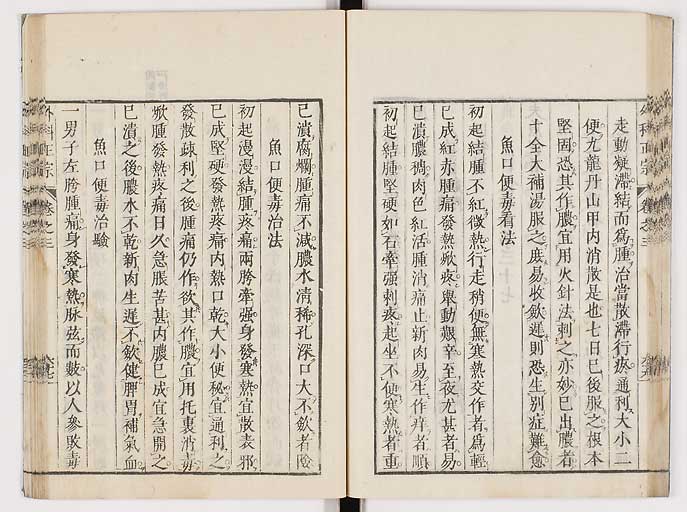 走動疑滯結而爲腫治當散滯行瘀通利大小二
便九龍丹山甲内消散是也七日已後服之根本
堅固恐其作膿宜用火針法刺之亦妙已出膿者
十全大補湯服之庶易收歛遲則恐生別症難愈
魚口便毒看法
初起結腫不紅微熱行走稍便無寒熱交作者爲輕
已成紅赤腫痛發熱焮疼舉動艱辛至夜尤甚者易
已潰膿稠肉色紅活腫消痛止新肉易生作痒者順
初起結腫堅硬如石牽强刺疼起坐不便寒熱者重
已潰腐爛腫痛不減膿水清稀孔深口大不歛者險
魚口便毒治法
初起漫漫結腫疼痛兩胯牽强身發寒熱宜散表邪
已成堅硬發熱疼痛内熱口乾大小便秘宜通利之
發散疎利之後腫痛仍作欲其作膿宜用托裏消毒
焮腫發熱疼痛日久急脹苦甚内膿已成宜急開之
已潰之後膿水不乾新肉生遲不歛健脾胃補氣血
魚口便毒治驗
一男子左胯腫痛身發寒熱脉弦而數以人參敗毒
外科正宗
卷之三